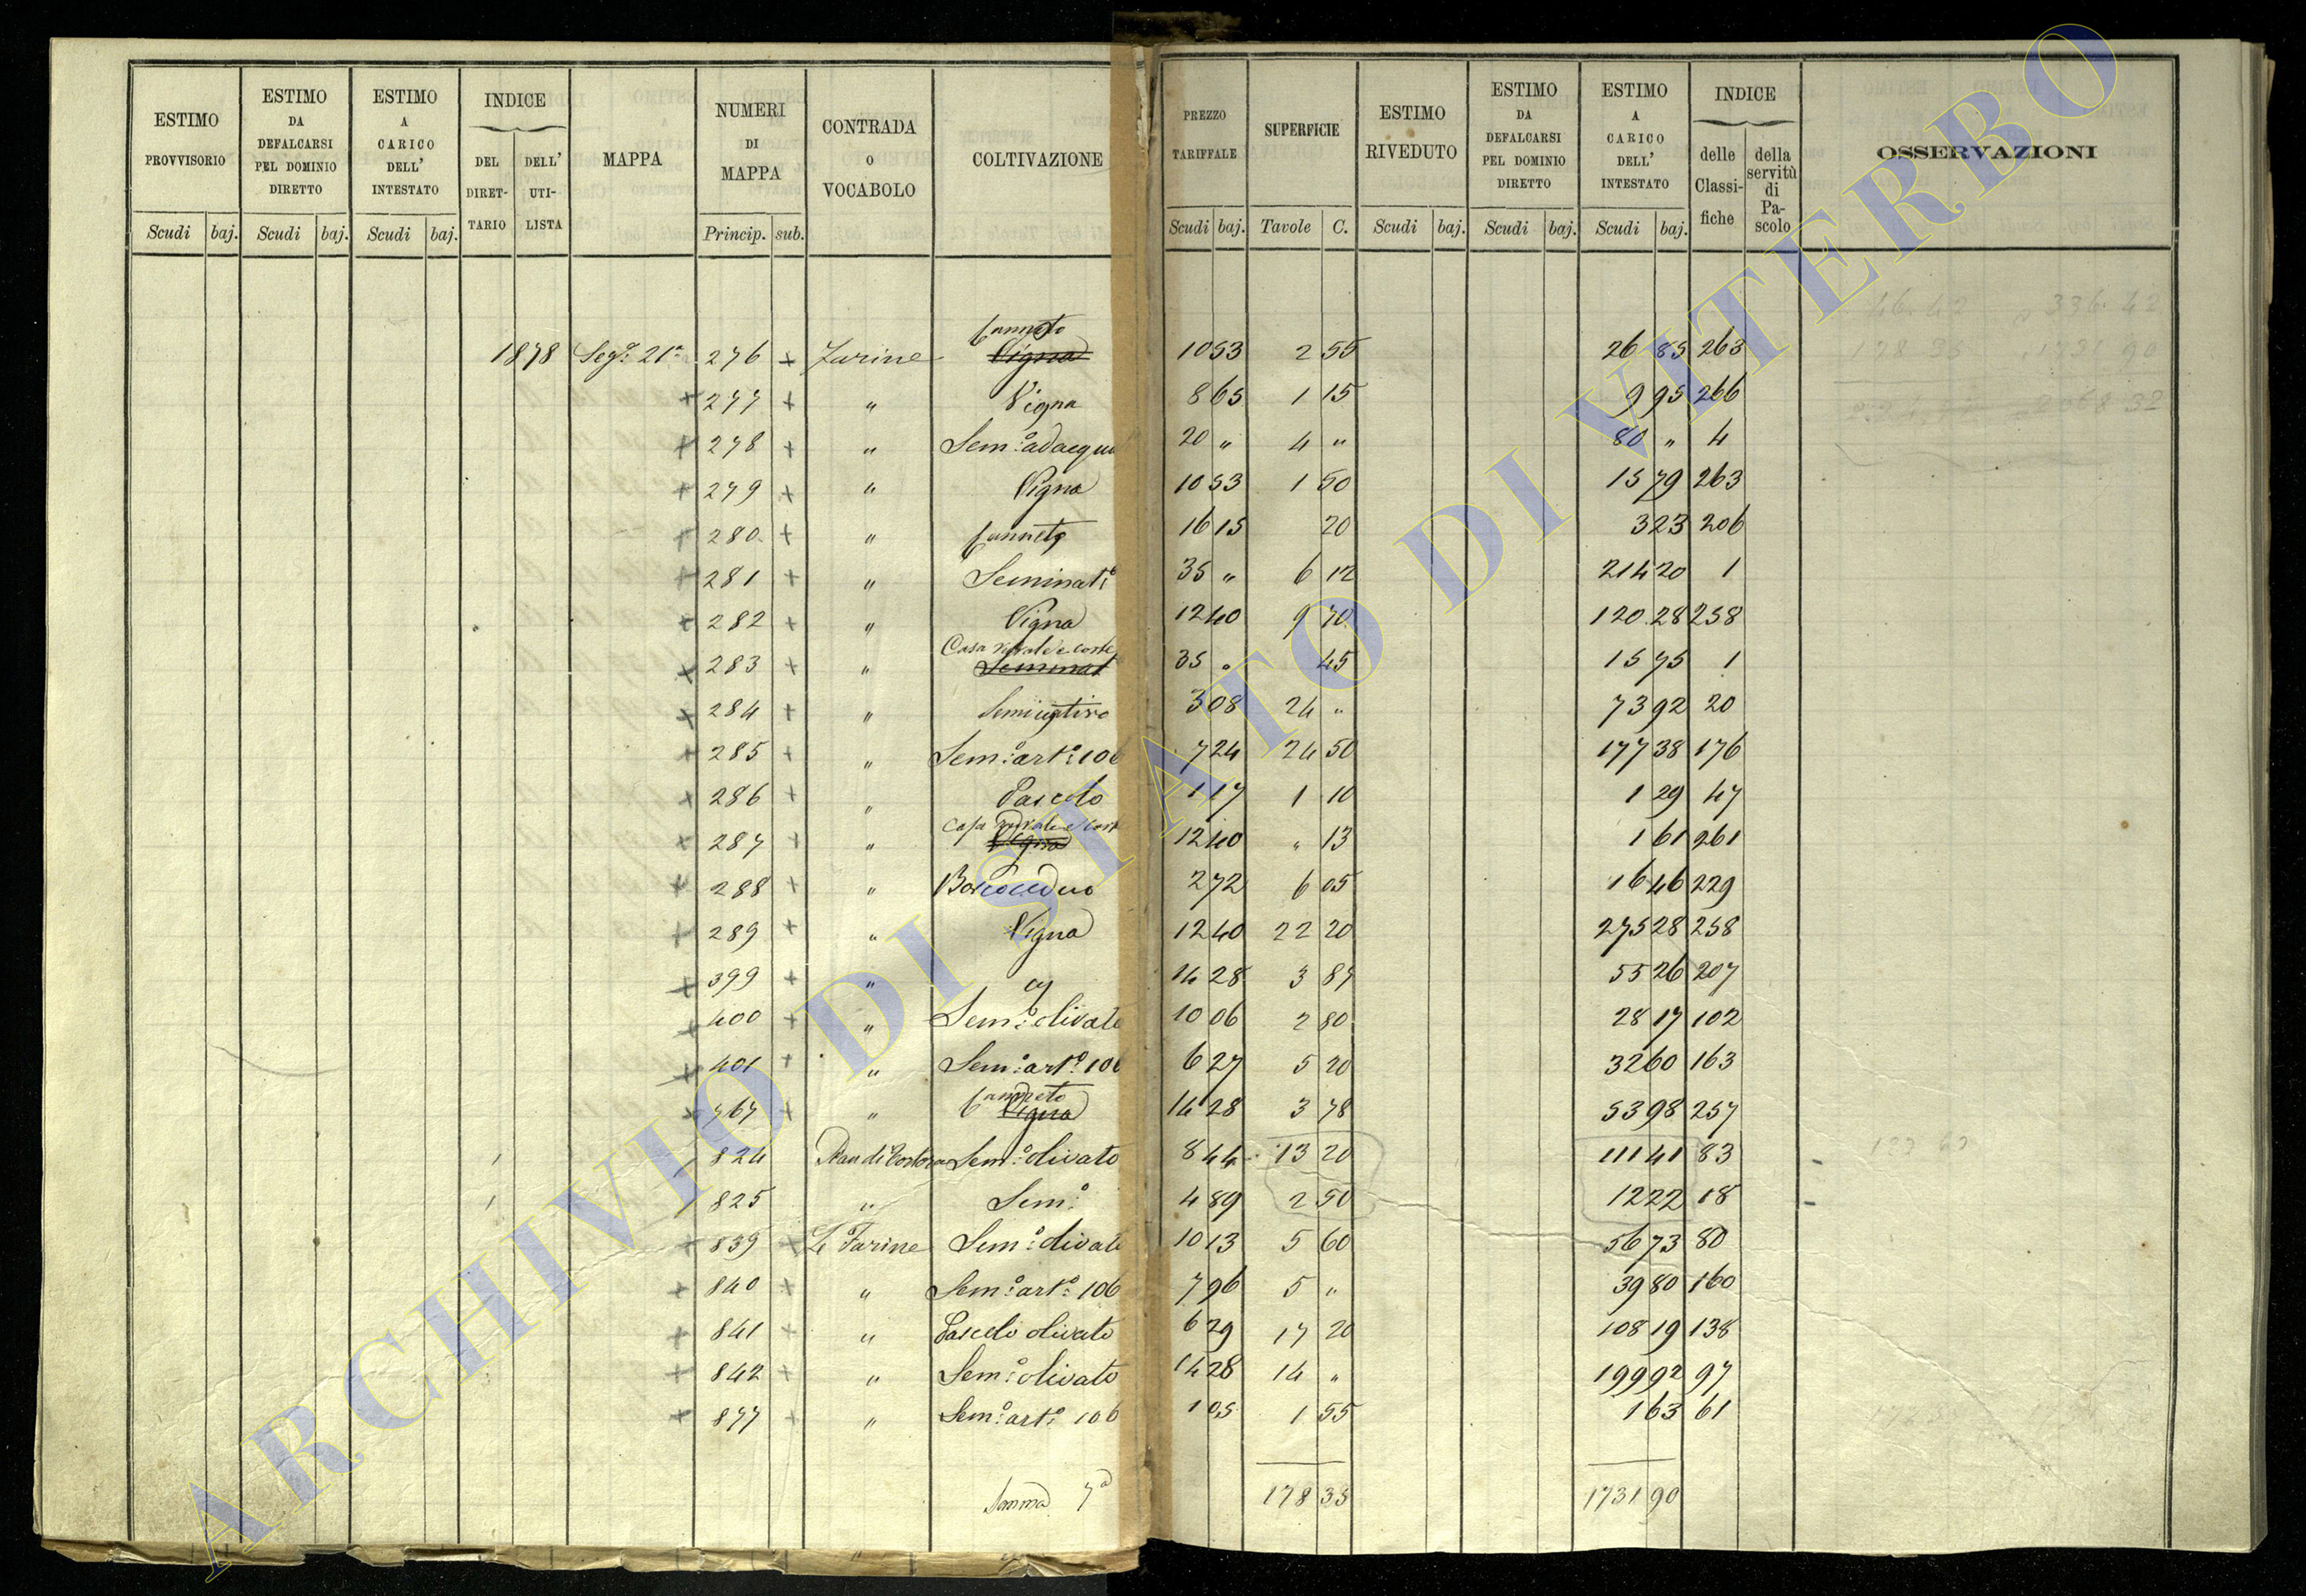 ESTIMO PROVVISORIO | ESTIMO DA DEFALCARSI PEL DOMINIO DIRETTO | ESTIMO A CARICO DELL' INTESTATO | INDICE DEL DIRETTARIO DELL' UTILISTA | MAPPA | NUMERI DI MAPPA | CONTRADA O VOCABOLO | COLTIVAZIONE | PREZZO TARIFFALE | SUPERFICIE | ESTIMO RIVEDUTO | ESTIMO DA DEFALCARSI PEL DOMINIO DIRETTO | ESTIMO A CARICO DELL' INTESTATO | INDICE delle Classifiche della servitù di Pascolo | OSSERVAZIONI
Scudi baj. Scudi baj. Scudi baj. Princip. sub. Scudi baj. Tavole C. Scudi baj. Scudi baj. Scudi baj.
Canneto
1878 Segᵉ 21ª 276 + Farine Vigna 10 53 2 55 26 85 263
+ 277 + " Vigna 8 65 1 15 9 95 266
+ 278 + " Sem.º adacqu 20 " 4 " 80 " 4
+ 279 + " Vigna 10 53 1 50 15 79 263
+ 280 + " Canneto 16 15 20 3 23 206
+ 281 + " Seminatº 35 " 6 12 214 20 1
+ 282 + " Vigna 12 40 9 70 120 28 258
Casa rurale e corte
+ 283 + " Seminat 35 " 45 15 75 1
+ 284 + " Seminativo 3 08 24 " 73 92 20
+ 285 + " Sem.º art.º 106 7 24 24 50 177 38 176
+ 286 + " Pascolo 1 17 1 10 1 29 47
Casa rurale e cort
+ 287 + " Vigna 12 40 " 13 1 61 261
+ 288 + " Bosco ceduo 2 72 6 05 16 46 229
+ 289 + " Vigna 12 40 22 20 275 28 258
+ 399 + " " 14 28 3 87 55 26 207
+ 400 + " Sem.º olivato 10 06 2 80 28 17 102
+ 401 + " Sem.º art.º 106 6 27 5 20 32 60 163
Canneto
+ 767 + " Vigna 14 28 3 78 53 98 257
824 Sem.º olivato 8 44 13 20 111 41 83
825 " Sem.º 4 89 2 50 12 22 18
+ 839 + Le Farine Sem.º olivato 10 13 5 60 56 73 80
+ 840 + " Sem.º art.º 106 7 96 5 " 39 80 160
+ 841 + " Pascolo olivato 6 29 17 20 108 19 138
+ 842 + " Sem.º olivato 14 28 14 " 199 92 97
+ 877 + " Sem.º art.º 106 1 05 1 55 1 63 61
Somma 7ª 178 35 1731 90
ARCHIVIO DI STATO DI VITERBO